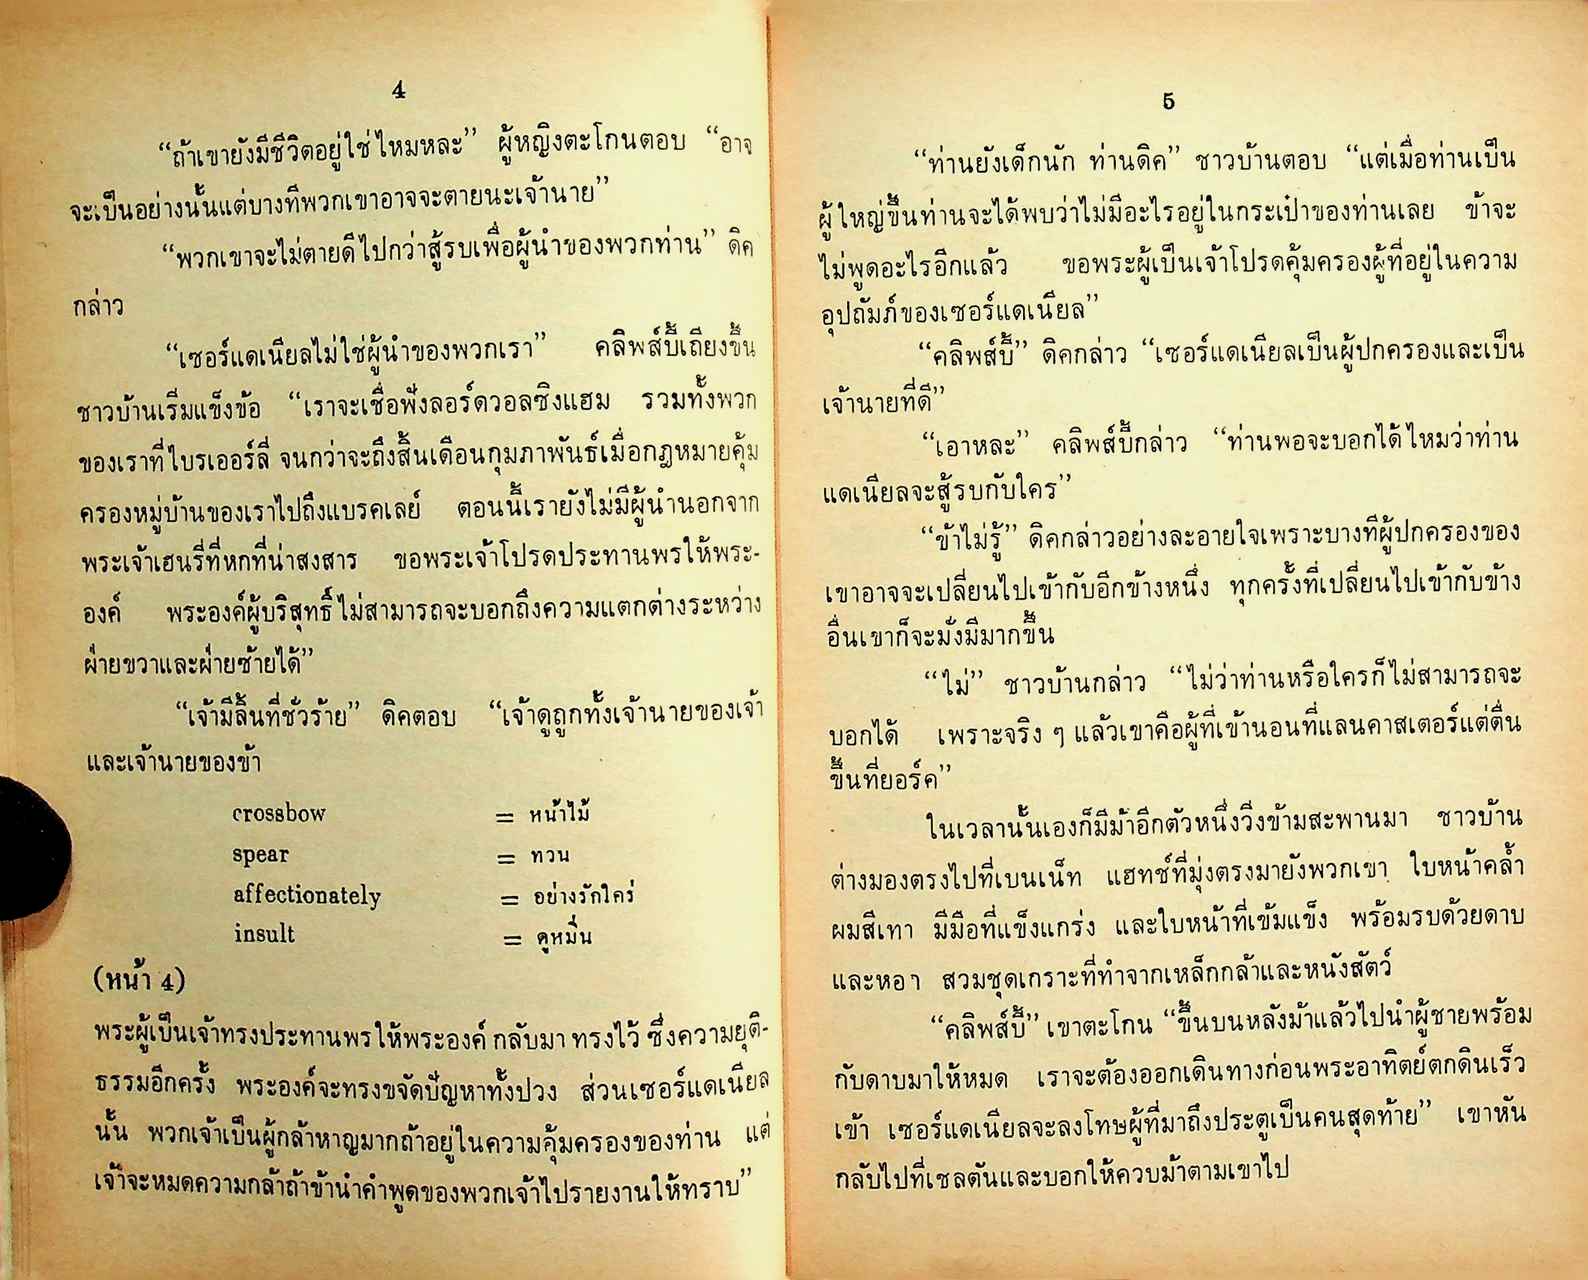 4
“ถ้าเขายังมีชีวิตอยู่ใช่ไหมหละ” ผู้หญิงตะโกนตอบ “อาจ
จะเป็นอย่างนั้นแต่บางทีพวกเขาอาจจะตายนะเจ้านาย”
“พวกเขาจะไม่ตายดีไปกว่าสู้รบเพื่อผู้นำของพวกท่าน” ดิค
กล่าว
“เซอร์แดเนียลไม่ใช่ผู้นำของพวกเรา” คลิพส์บี้เถียงขึ้น
ชาวบ้านเริ่มแข็งข้อ “เราจะเชื่อฟังลอร์ดวอลซิงแฮม รวมทั้งพวก
ของเราที่ไบรเออร์ลี่ จนกว่าจะถึงสิ้นเดือนกุมภาพันธ์เมื่อกฎหมายคุ้ม
ครองหมู่บ้านของเราไปถึงแบรคเลย์ ตอนนี้เรายังไม่มีผู้นำนอกจาก
พระเจ้าเฮนรี่ที่หกที่น่าสงสาร ขอพระเจ้าโปรดประทานพรให้พระ-
องค์ พระองค์ผู้บริสุทธิ์ไม่สามารถจะบอกถึงความแตกต่างระหว่าง
ฝ่ายขวาและฝ่ายซ้ายได้”
“เจ้ามีลิ้นที่ชั่วร้าย” ดิคตอบ “เจ้าดูถูกทั้งเจ้านายของเจ้า
และเจ้านายของข้า
crossbow = หน้าไม้
spear = ทวน
affectionately = อย่างรักใคร่
insult = ดูหมิ่น
(หน้า 4)
พระผู้เป็นเจ้าทรงประทานพรให้พระองค์ กลับมา ทรงไว้ ซึ่งความยุติ-
ธรรมอีกครั้ง พระองค์จะทรงขจัดปัญหาทั้งปวง ส่วนเซอร์แดเนียล
นั้น พวกเจ้าเป็นผู้กล้าหาญมากถ้าอยู่ในความคุ้มครองของท่าน แต่
เจ้าจะหมดความกล้าถ้าข้านำคำพูดของพวกเจ้าไปรายงานให้ทราบ”
5
“ท่านยังเด็กนัก ท่านดิค” ชาวบ้านตอบ “แต่เมื่อท่านเป็น
ผู้ใหญ่ขึ้นท่านจะได้พบว่าไม่มีอะไรอยู่ในกระเป๋าของท่านเลย ข้าจะ
ไม่พูดอะไรอีกแล้ว ขอพระผู้เป็นเจ้าโปรดคุ้มครองผู้ที่อยู่ในความ
อุปถัมภ์ของเซอร์แดเนียล”
“คลิพส์บี้” ดิคกล่าว “เซอร์แดเนียลเป็นผู้ปกครองและเป็น
เจ้านายที่ดี”
“เอาหละ” คลิพส์บี้กล่าว “ท่านพอจะบอกได้ไหมว่าท่าน
แดเนียลจะสู้รบกับใคร”
“ข้าไม่รู้” ดิคกล่าวอย่างละอายใจเพราะบางทีผู้ปกครองของ
เขาอาจจะเปลี่ยนไปเข้ากับอีกข้างหนึ่ง ทุกครั้งที่เปลี่ยนไปเข้ากับข้าง
อื่นเขาก็จะมั่งมีมากขึ้น
“ไม่” ชาวบ้านกล่าว “ไม่ว่าท่านหรือใครก็ไม่สามารถจะ
บอกได้ เพราะจริง ๆ แล้วเขาคือผู้ที่เข้านอนที่แลนคาสเตอร์แต่ตื่น
ขึ้นที่ยอร์ค”
ในเวลานั้นเองก็มีม้าอีกตัวหนึ่งวิ่งข้ามสะพานมา ชาวบ้าน
ต่างมองตรงไปที่เบนเน็ท แฮทช์ที่มุ่งตรงมายังพวกเขา ใบหน้าคล้ำ
ผมสีเทา มีมือที่แข็งแกร่ง และใบหน้าที่เข้มแข็ง พร้อมรบด้วยดาบ
และหอก สวมชุดเกราะที่ทำจากเหล็กกล้าและหนังสัตว์
“คลิพส์บี้” เขาตะโกน “ขึ้นบนหลังม้าแล้วไปนำผู้ชายพร้อม
กับดาบมาให้หมด เราจะต้องออกเดินทางก่อนพระอาทิตย์ตกดินเร็ว
เข้า เซอร์แดเนียลจะลงโทษผู้ที่มาถึงประตูเป็นคนสุดท้าย” เขาหัน
กลับไปที่เชลตันและบอกให้ควบม้าตามเขาไป